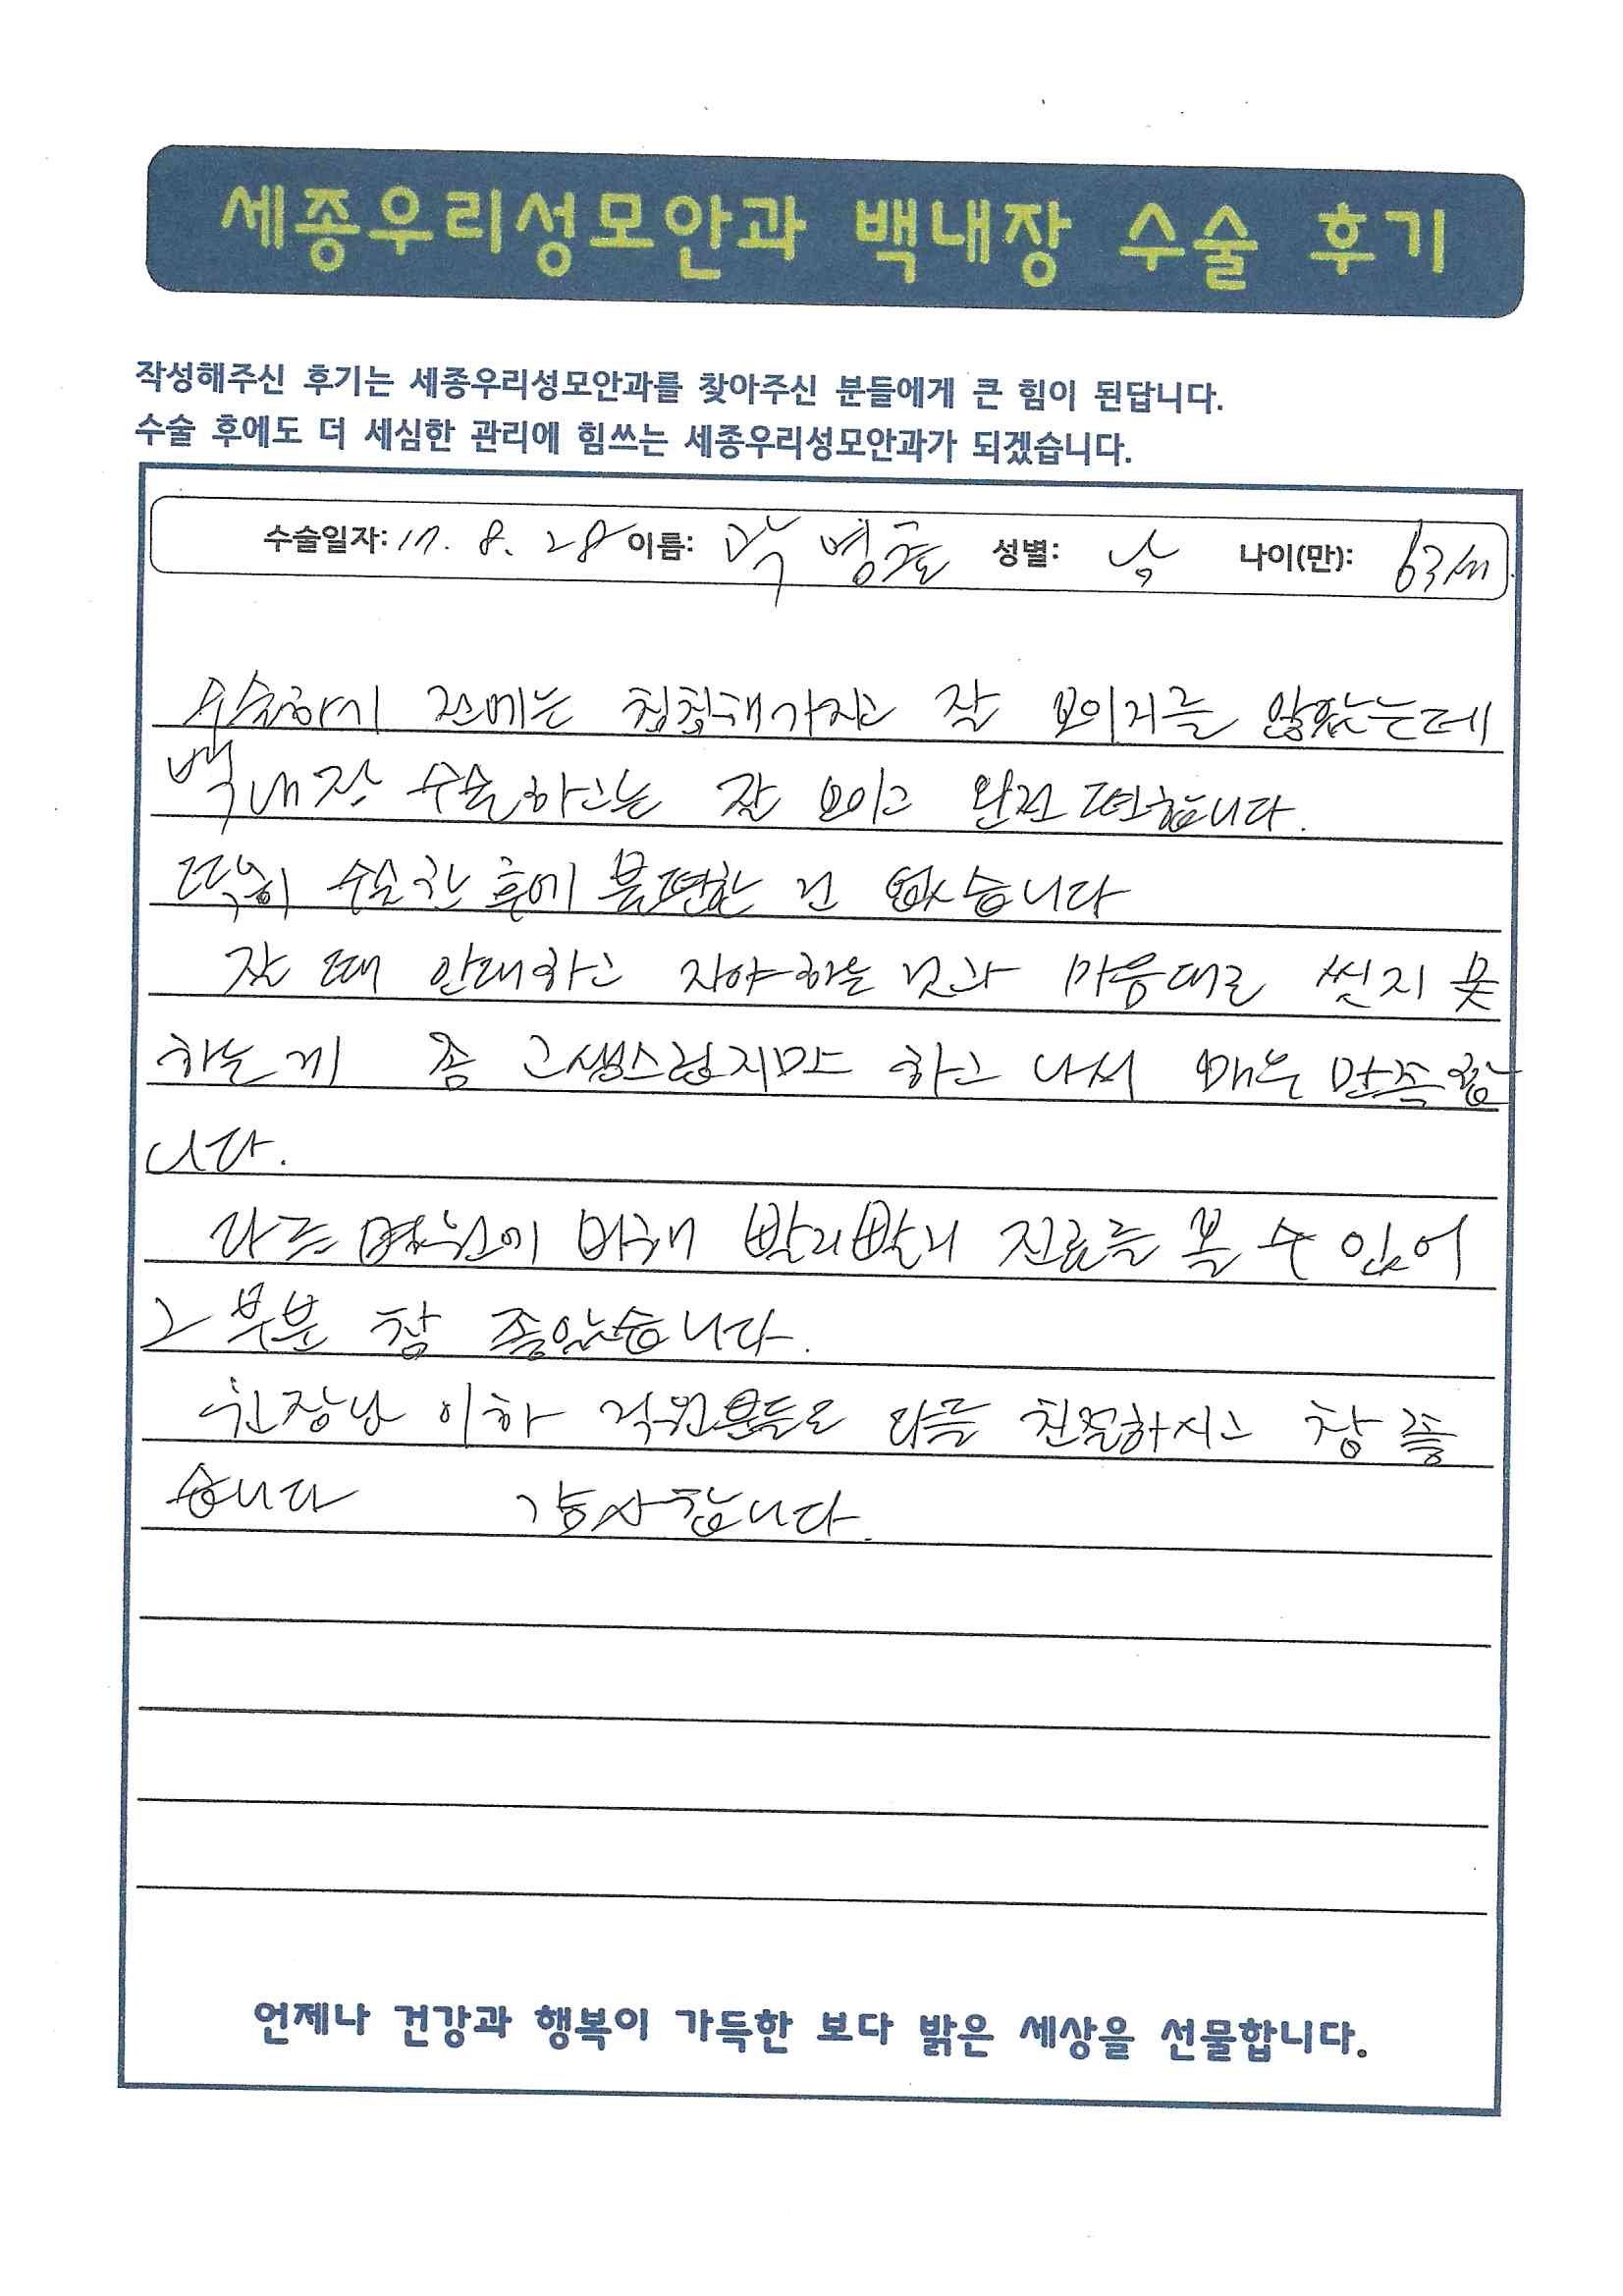 세종우리성모안과 백내장 수술 후기
작성해주신 후기는 세종우리성모안과를 찾아주신 분들에게 큰 힘이 된답니다.
수술 후에도 더 세심한 관리에 힘쓰는 세종우리성모안과가 되겠습니다.
수술일자: 17. 8. 28 이름: 곽 병 성별: 남 나이(만): 63세.
수술하기 전에는 침침해가지고 잘 보이거를 않았는데
백내장 수술하고는 잘 보이고 완전 편합니다.
딱히 수술한 후에 불편한 건 없습니다
잘 때 안대하고 자야하는 것과 마음대로 씻지 못
하는게 좀 고생스럽지만 하고 나서 매우 만족합
니다.
다른 병원에 비해 빨리빨리 진료를 볼 수 있어
그 부분 참 좋았습니다.
원장님 이하 직원분들도 다들 친절하시고 참 좋
습니다 감사합니다.
언제나 건강과 행복이 가득한 보다 밝은 세상을 선물합니다.